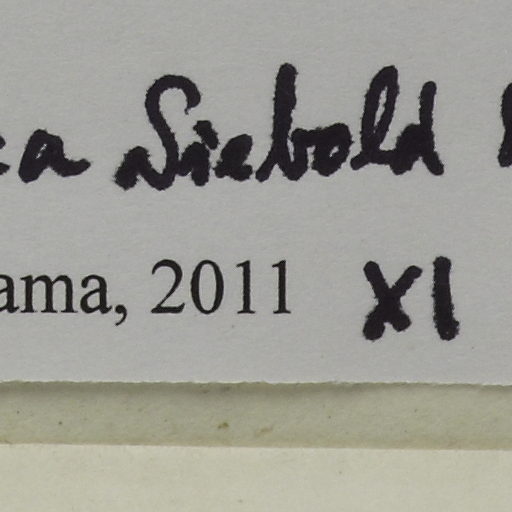 ca Siebold
ama, 2011 XI